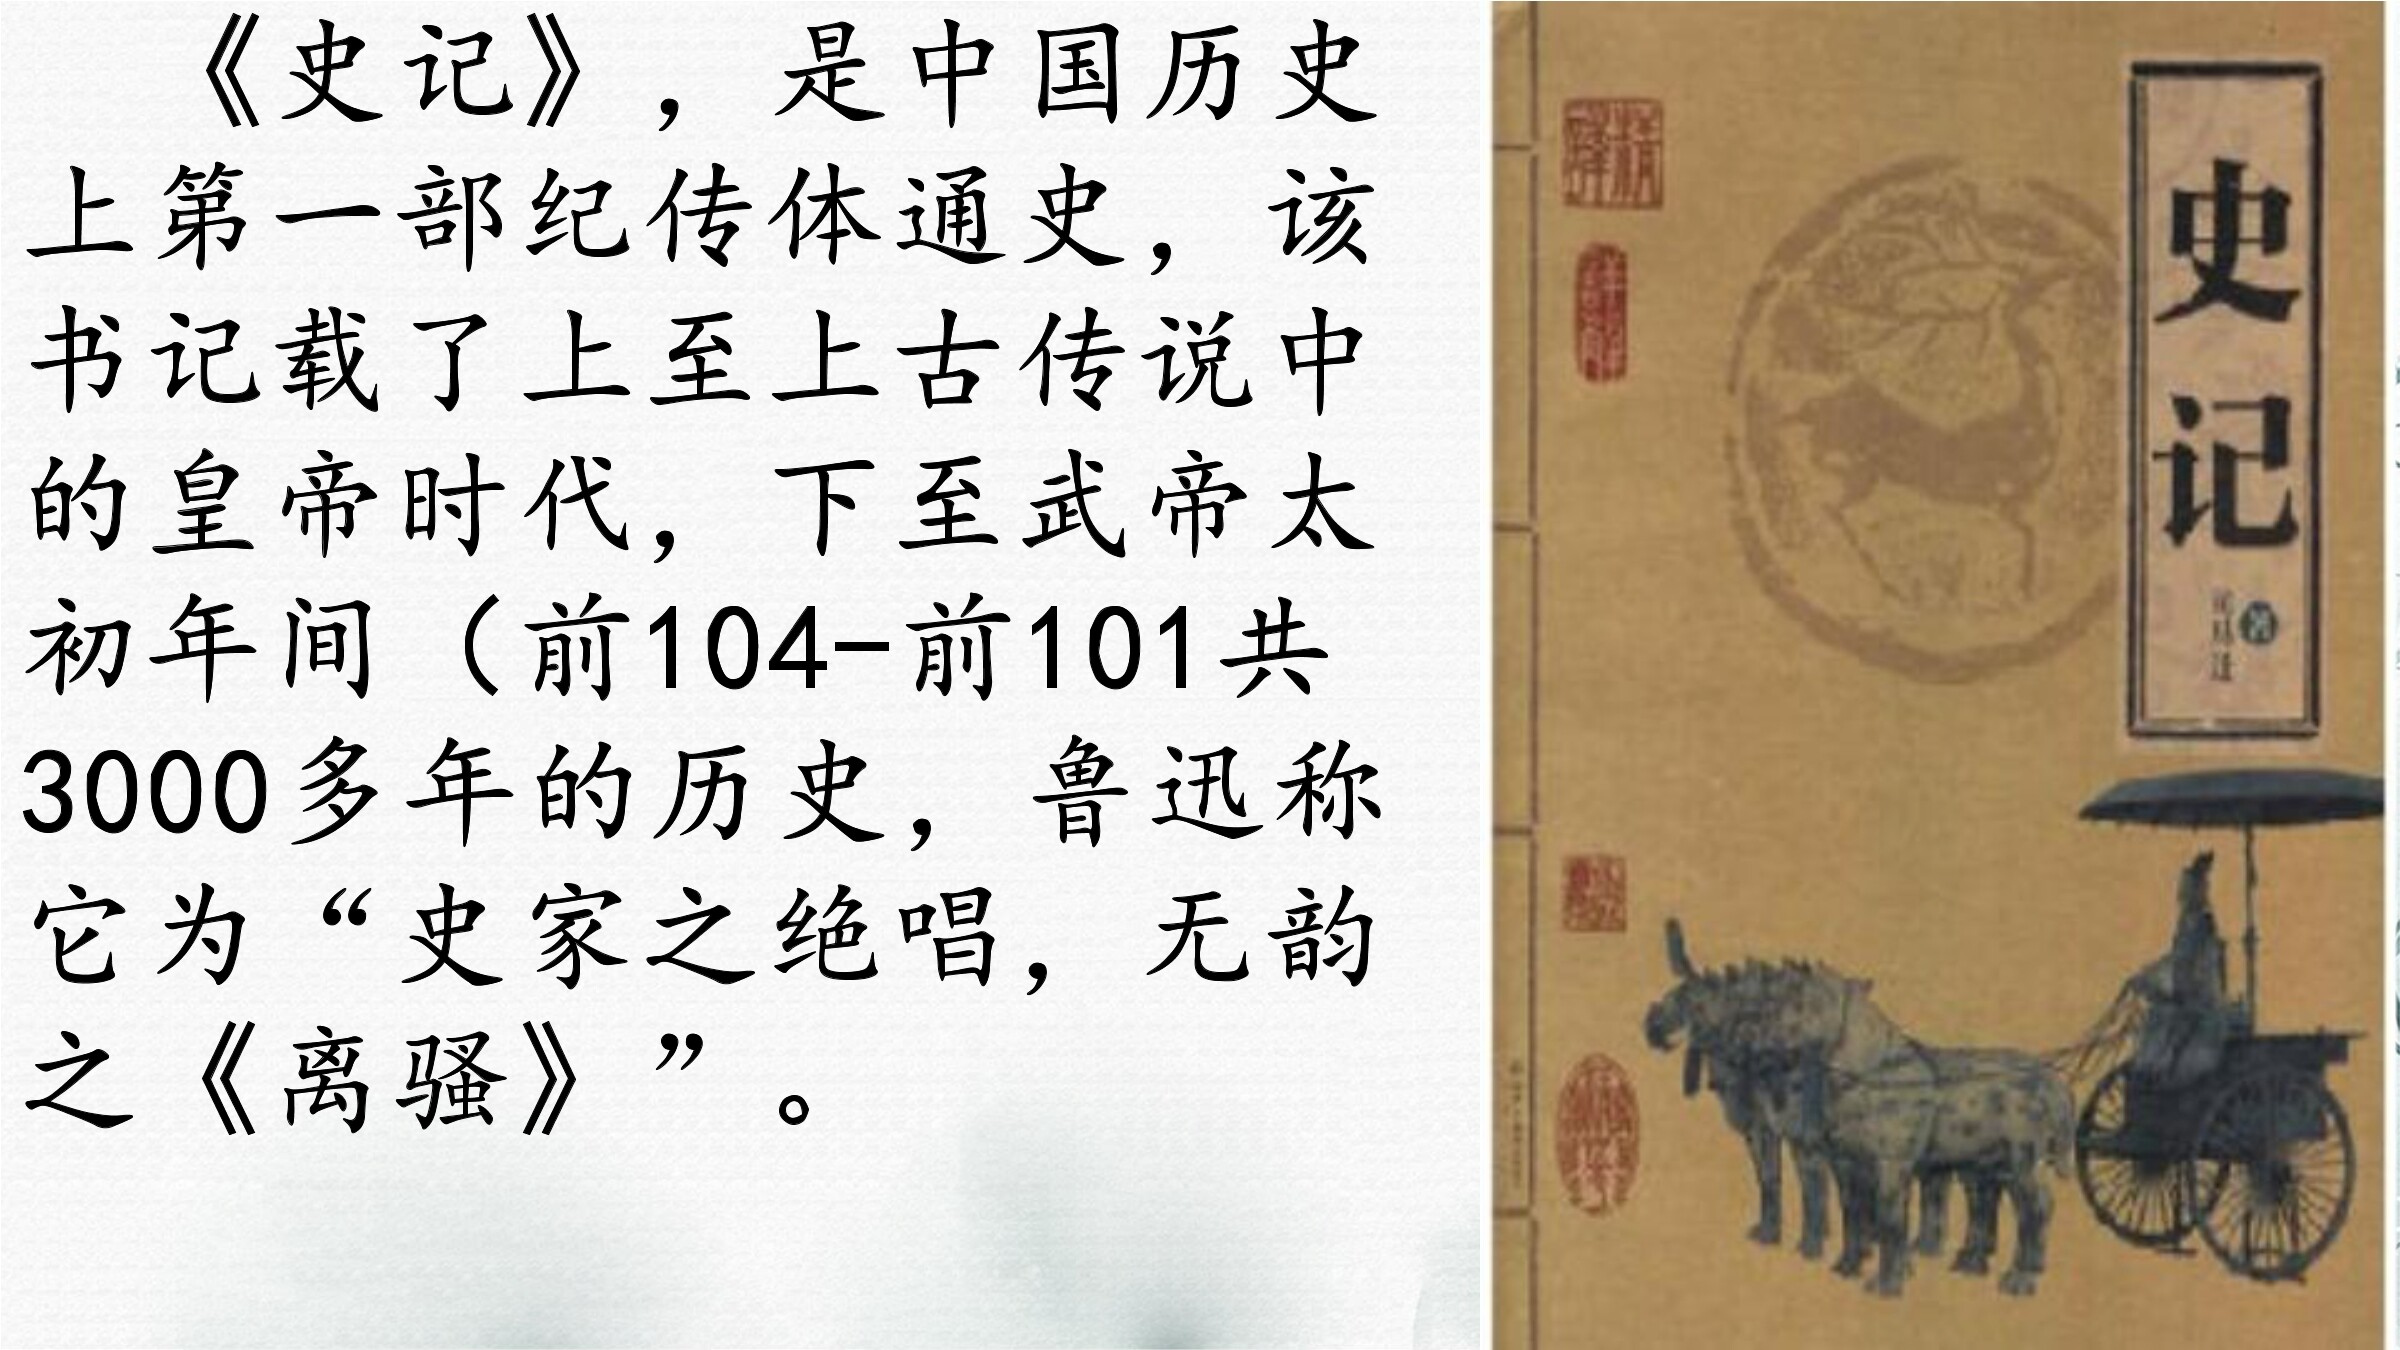 《史记》，是中国历史
上第一部纪传体通史，该
书记载了上至上古传说中
的皇帝时代，下至武帝太
初年间（前104-前101共
3000多年的历史，鲁迅称
它为“史家之绝唱，无韵
之《离骚》”。
史记
司马迁 著